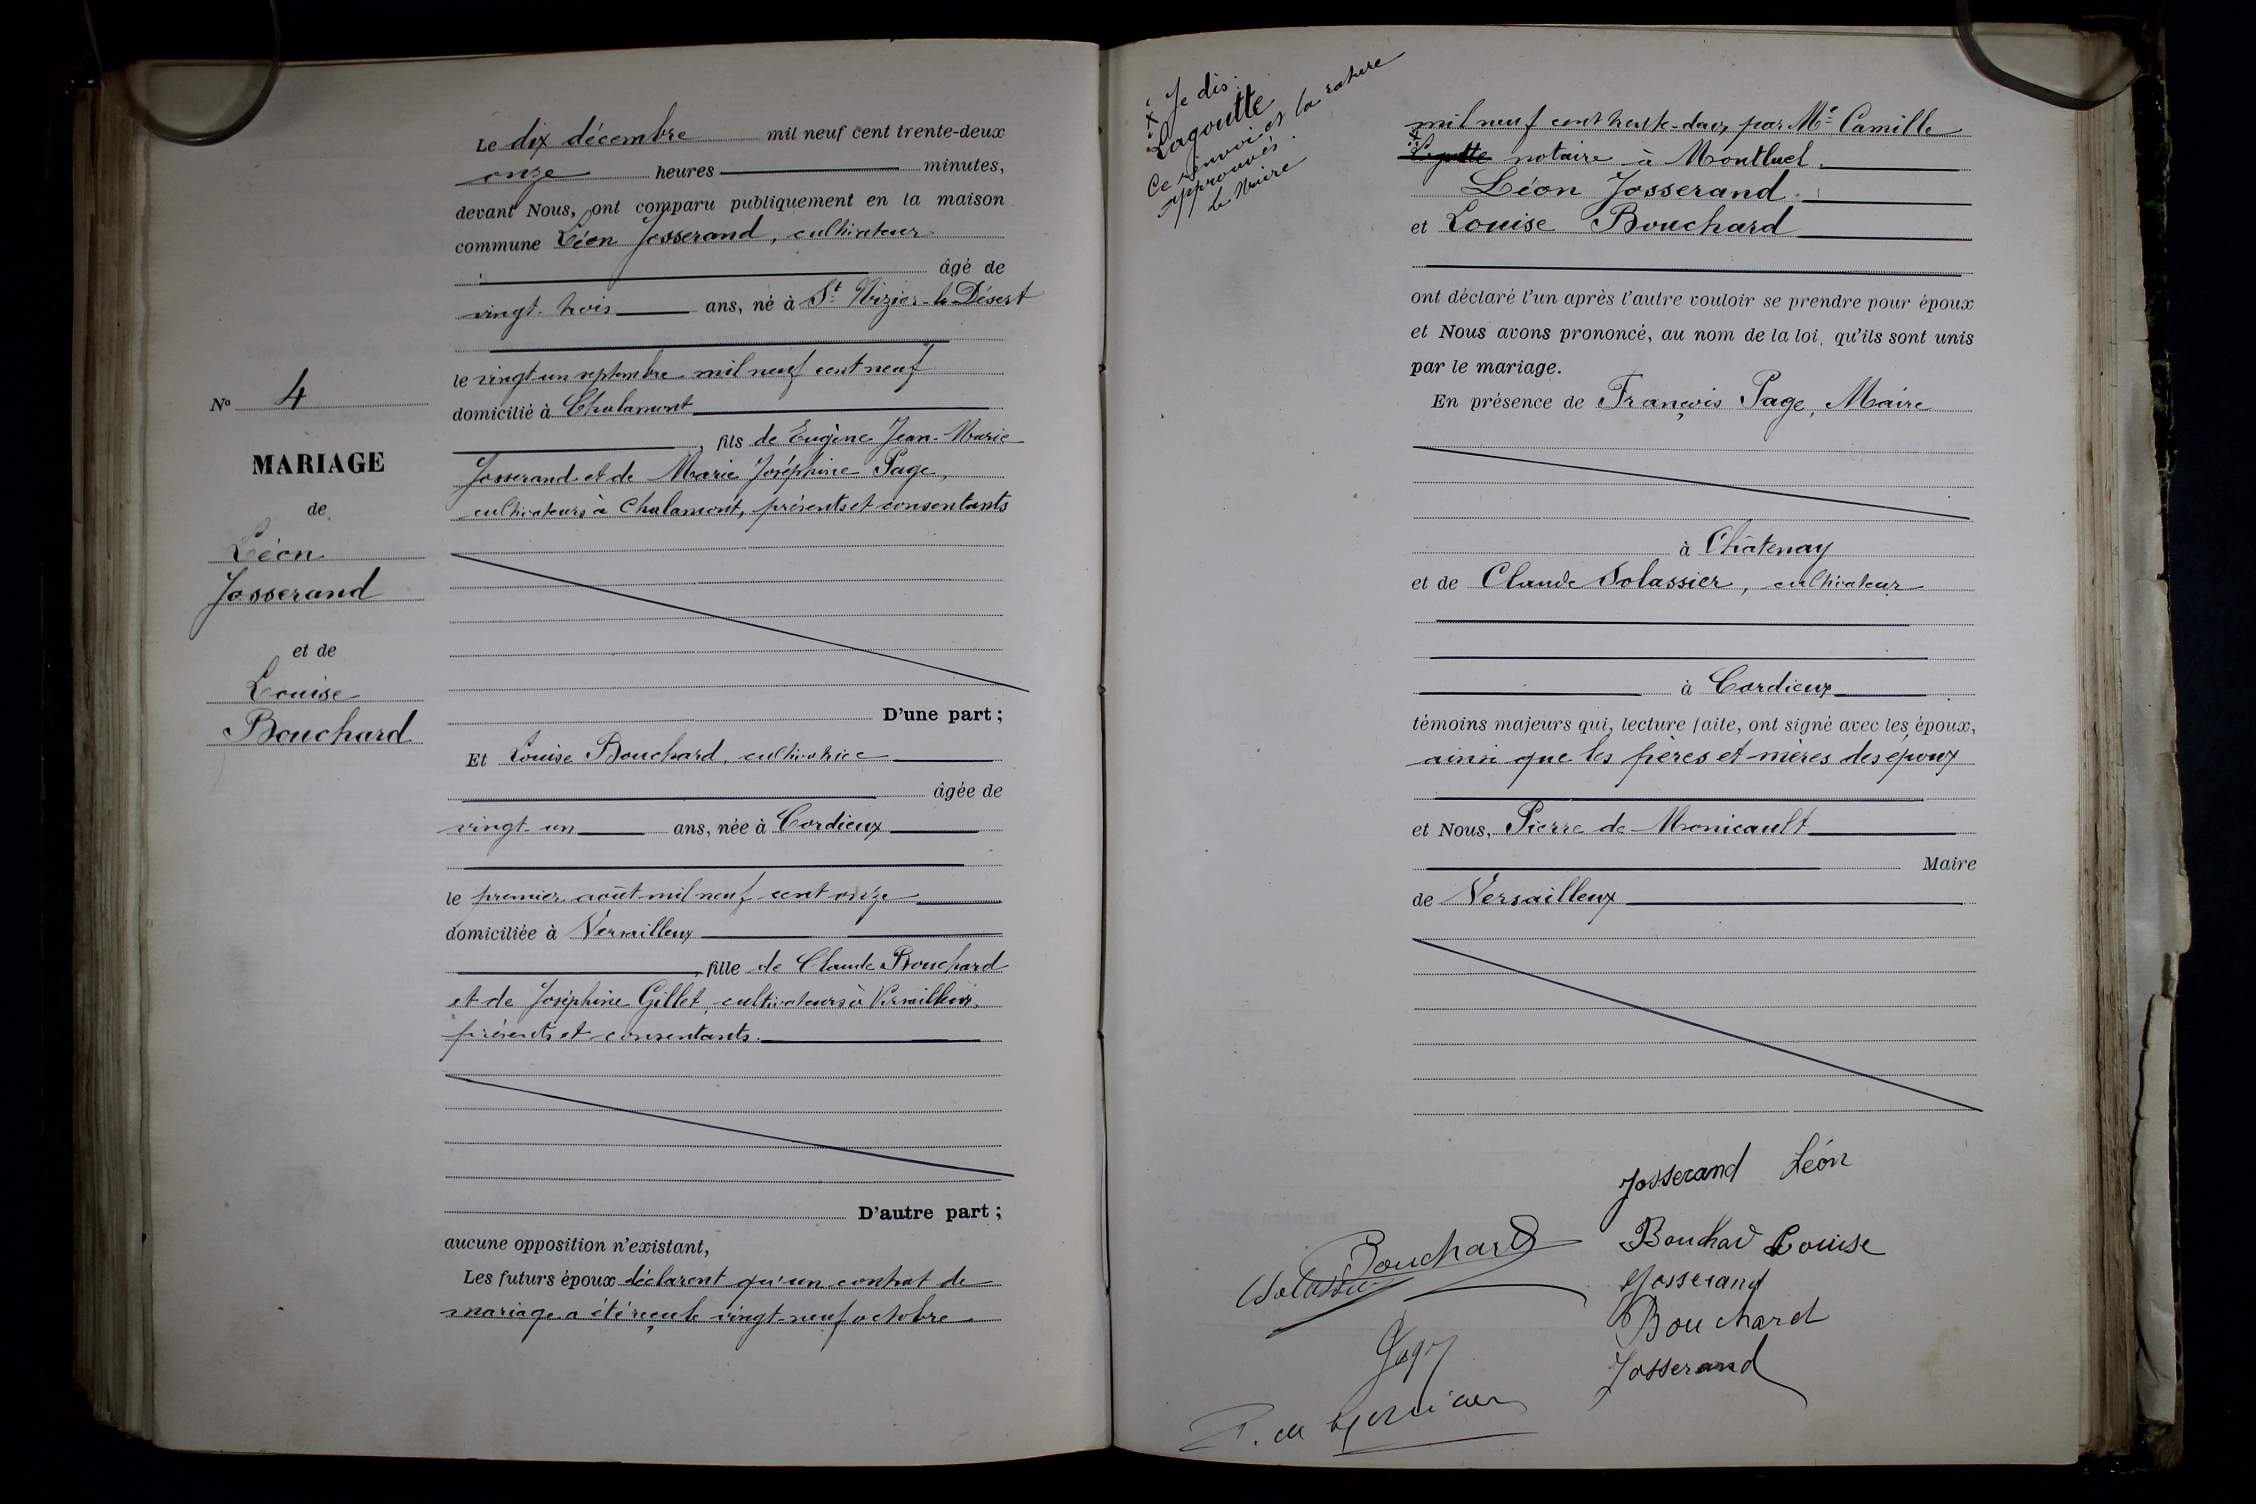 Le dix décembre mil neuf cent trente-deux
onze heures minutes,
devant Nous, ont comparu publiquement en la maison
commune Léon Josserand, cultivateur
âgé de
vingt-trois ans, né à St Nizier-le-Désert
le vingt un septembre mil neuf cent neuf
domicilié à Chalamont
, fils de Eugène Jean-Marie
Josserand et de Marie Joséphine Page,
cultivateurs à Chalamont, présents et consentants
D'une part ;
Et Louise Bouchard, cultivatrice
âgée de
vingt-un ans, née à Cordieux
le premier août mil neuf cent onze
domiciliée à Versailleux
, fille de Claude Bouchard
et de Joséphine Gillet, cultivateurs à Versailleux,
présents et consentants.
D'autre part ;
aucune opposition n'existant,
Les futurs époux déclarent qu'un contrat de
mariage a été reçu le vingt-neuf octobre
No 4
MARIAGE
de
Léon
Josserand
et de
Louise
Bouchard
x Je dis :
Lagoutte
Ce renvoi et la rature
approuvés.
Le Maire
mil neuf cent trente-deux par Me Camille
x notaire à Montluel.
Léon Josserand.
et Louise Bouchard
ont déclaré l'un après l'autre vouloir se prendre pour époux
et Nous avons prononcé, au nom de la loi, qu'ils sont unis
par le mariage.
En présence de François Page, Maire
à Châtenay
et de Claude Solassier, cultivateur
à Cordieux
témoins majeurs qui, lecture faite, ont signé avec les époux,
ainsi que les pères et mères des époux
et Nous, Pierre de Monicault
Maire
de Versailleux
Josserand Léon
Bouchard Bouchard Louise
Solassier Josserand
Bouchard
Page Josserand
P. de Monicault